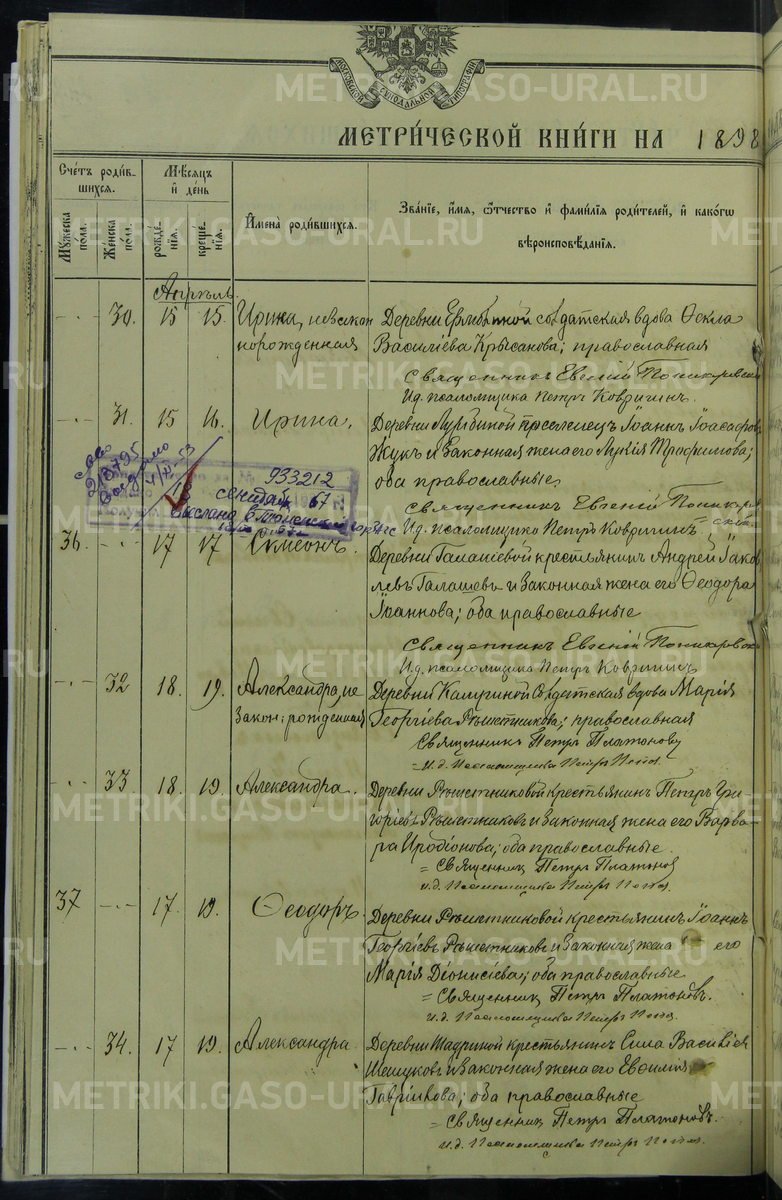 МОСКОВСКОЙ СѴНОДАЛЬНОЙ ТИПОГРАФІИ
МЕТРИ́ЧЕСКОЙ КНИ́ГИ НА 1898
Сче́тъ роди́в-
шихся.
Мѣ́сяцъ
и҆ де́нь
И҆мена̀ роди́вшихся.
Зва́нїе, и҆́мя, ѻ҆́тчество и҆ фами́лїя роди́телей, и҆ како́гѡ
вѣроисповѣ́данїя.
Мꙋ́жеска
по́ла.
Же́нска
по́ла.
рожде́-
нїя.
креще́-
нїя.
Апрѣль
-·- 30. 15 15. Ирина, незакон
норожденная
Деревни солдатская вдова Ѳекла
Василіева Крысанова; православная
Священникъ Евгеній
И.д. псаломщика Петръ Ковригинъ.
-·- 31. 15 16. Ирина,
Деревни Іоаннъ Іоасафовъ
Жукъ и законная жена его Лукія Трофимова;
оба православные
Священникъ Евгеній
И.д. псаломщика Петръ Ковригинъ
933212
сентября 67
36. -·- 17 17 Симеонъ.
Деревни Галашевой крестьянинъ Андрей Іаков
левъ Галашевъ и законная жена его Ѳеодора
Іоаннова; оба православные
Священникъ Евгеній
И.д. псаломщика Петръ Ковригинъ
-·- 32 18. 19. Александра, не
закон: рожденная
Деревни Калугиной солдатская вдова Марія
Георгіева Рѣшетникова; православная
Священникъ Петръ Платоновъ
= и.д. Псаломщика Петръ Попов.
-·- 33. 18. 19. Александра.
Деревни Рѣшетниковой крестьянинъ Петръ Гри-
горіевъ Рѣшетниковъ и законная жена его Варва-
ра Иродіонова; оба православные.
= Священникъ Петръ Платоновъ
и.д. Псаломщика Петръ Попов.
37 -·- 17. 19. Ѳеодоръ.
Деревни Рѣшетниковой крестьянинъ Іоаннъ
Георгіевъ Рѣшетниковъ и законная жена его
Марія Діонисіева; оба православные
= Священникъ Петръ Платоновъ.
и.д. Псаломщика Петръ Попов.
-·- 34. 17 19. Александра
Деревни Шадриной крестьянинъ Сила Василіев
Шешуковъ и законная жена его Евѳимія
Гаврилова; оба православные
= Священникъ Петръ Платоновъ.
и.д. Псаломщика Петръ Попов.
METRIKI.GASO-URAL.RU